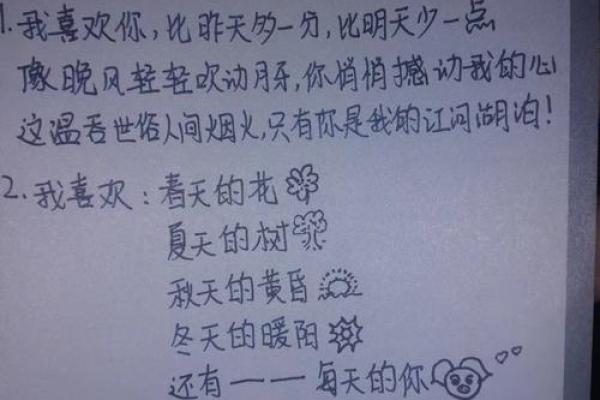 1.我喜欢你，比昨天多一分，比明天少一点
像晚风轻轻吹动月牙，你悄悄撼动我的心
这温吞世俗人间烟火，只有你是我的江河湖泊！
2.我喜欢：春天的花
夏天的树
秋天的黄昏
冬天的暖阳
还有一一每天的你